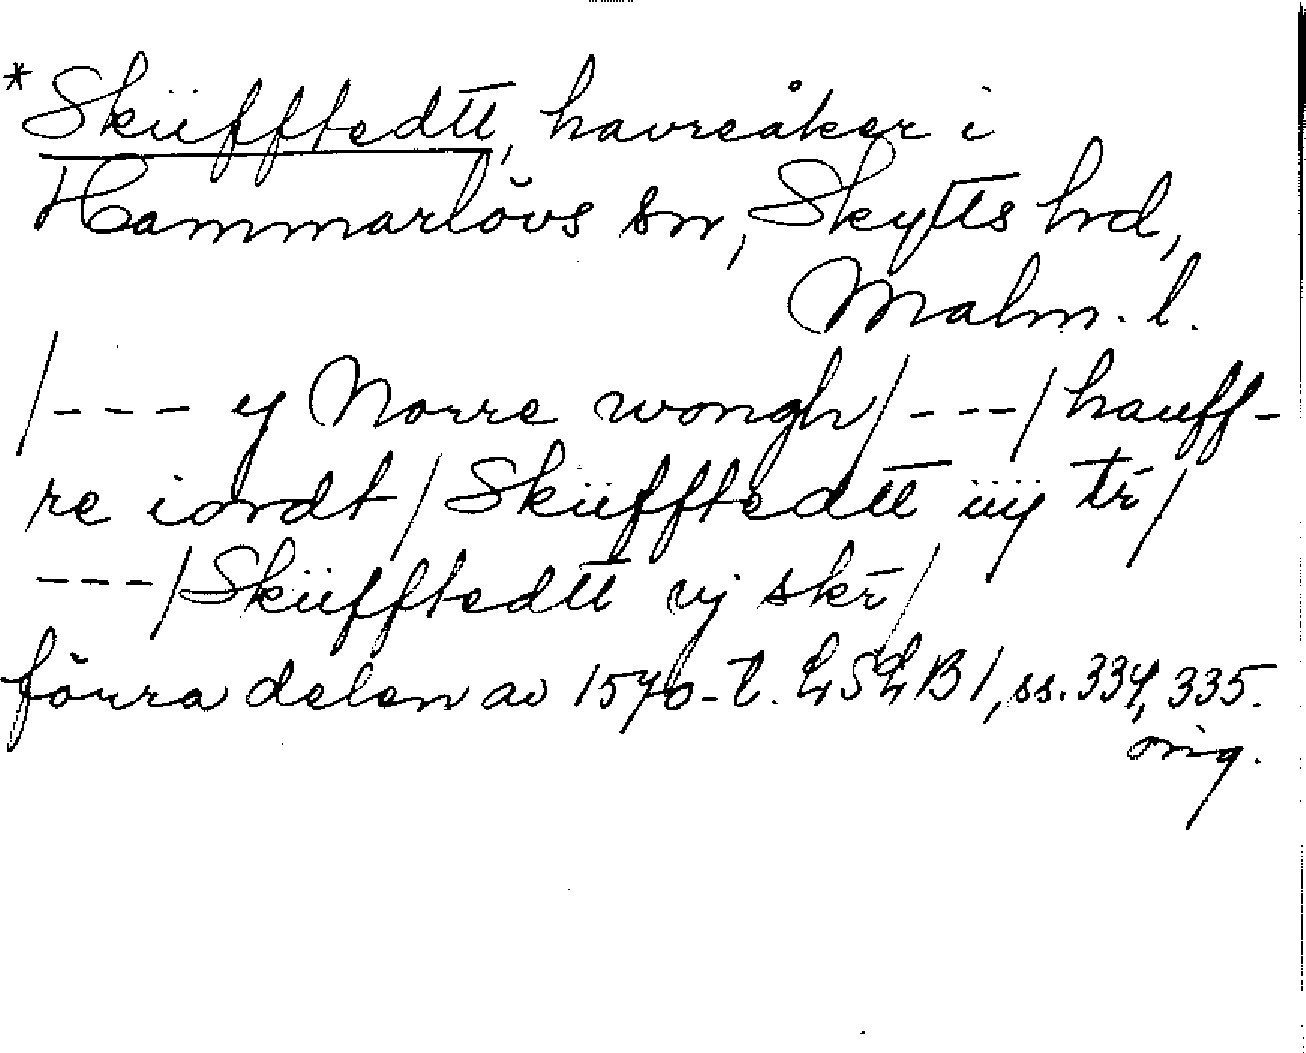 *Sküfftedtt, havreåker i
Hammarlövs sn, Skytts hd,
Malm. l.
/--- y Norre wongh/---/hauff-
re iordt/Sküfftedtt iiij tr̄/
---/Sküfftedtt vj skr̄/
förra delen av 1570-t. LSLB1, ss. 334, 335.
orig.